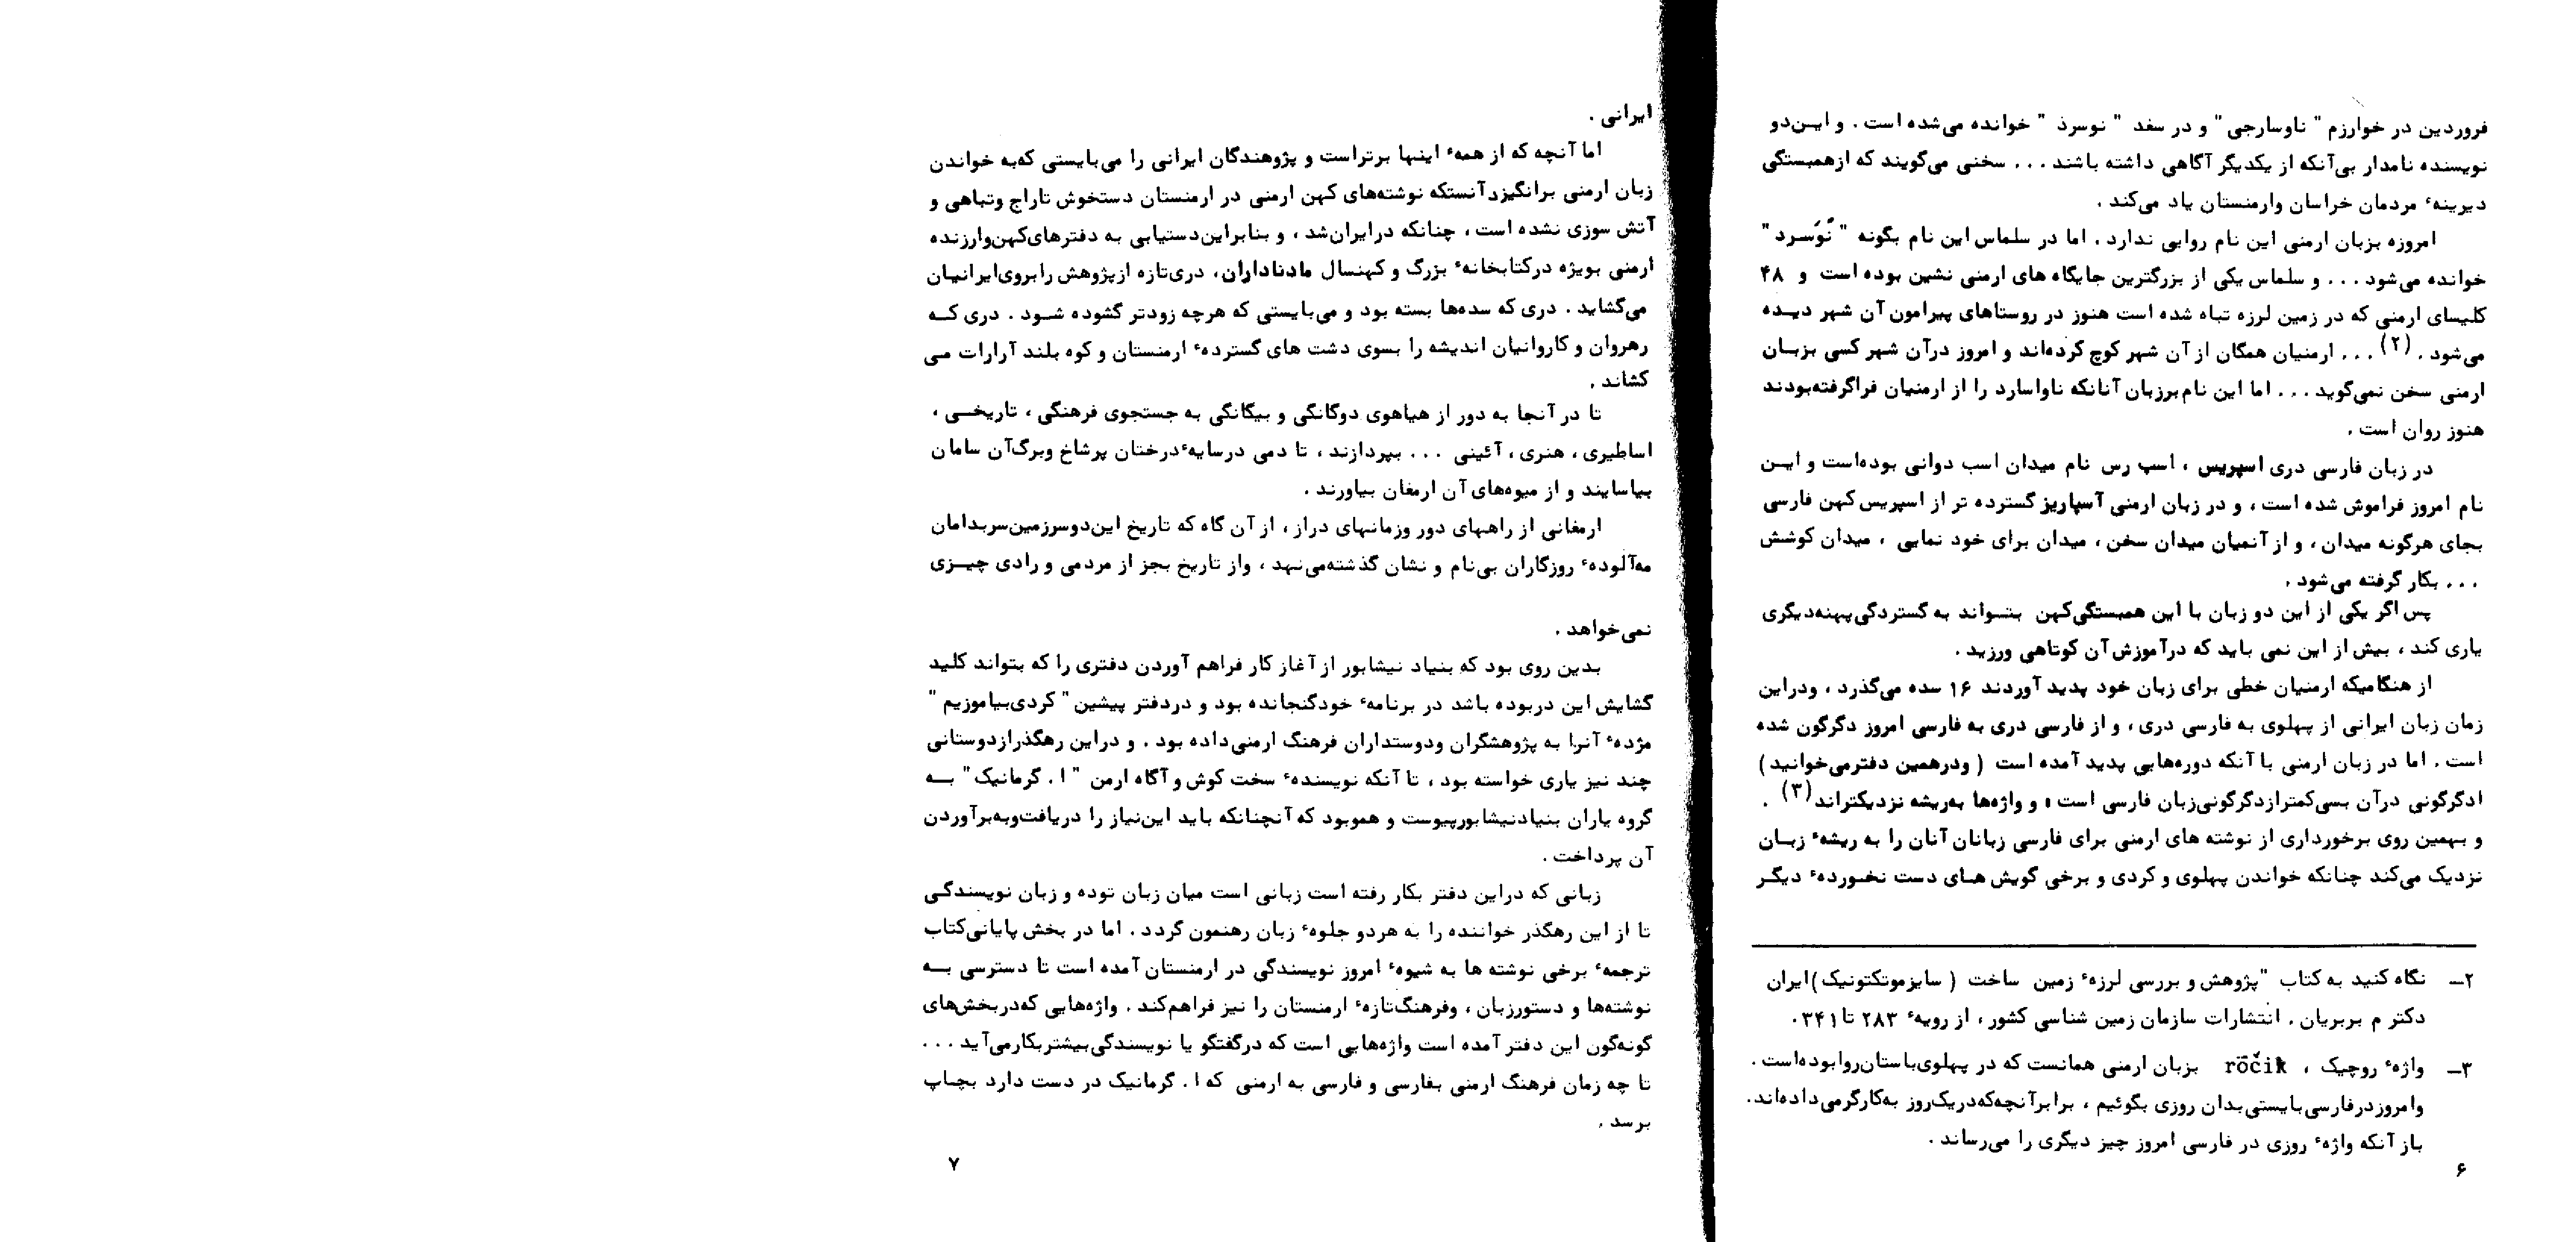 فروردین در خوارزم " ناوسارجی" و در سغد " نوسرذ " خوانده می‌شده است . و ایـن‌دو
نویسنده نامدار بی‌آنکه از یکدیگر آگاهی داشته باشند . . . سخنی می‌گویند که ازهمبستگی
دیرینهٔ مردمان خراسان وارمنستان یاد می‌کند .
امروزه بزبان ارمنی این نام روایی ندارد . اما در سلماس این نام بگونه " نَوُسرد "
خوانده می‌شود . . . و سلماس یکی از بزرگترین جایگاه های ارمنی نشین بوده است و ۴۸
کلیسای ارمنی که در زمین لرزه تباه شده است هنوز در روستاهای پیرامون آن شهر دیـده
می‌شود .(۲) . . . ارمنیان همگان از آن شهر کوچ کرده‌اند و امروز درآن شهر کسی بزبـان
ارمنی سخن نمی‌گوید . . . اما این نام برزبان آنانکه ناواسارد را از ارمنیان فراگرفته‌بودند
هنوز روان است .
در زبان فارسی دری اسپریس ، اسپ رس نام میدان اسب دوانی بوده‌است و ایـن
نام امروز فراموش شده است ، و در زبان ارمنی آسپاریز گسترده تر از اسپریس کهن فارسی
بجای هرگونه میدان ، و از آنمیان میدان سخن ، میدان برای خود نمایی ، میدان کوشش
. . . بکار گرفته می‌شود .
پس اگر یکی از این دو زبان با این همبستگی‌کهن بتـواند به گستردگی‌پهنه‌دیگری
یاری کند ، بیش از این نمی باید که درآموزش آن کوتاهی ورزید .
از هنگامیکه ارمنیان خطی برای زبان خود پدید آوردند ۱۶ سده می‌گذرد ، ودراین
زمان زبان ایرانی از پهلوی به فارسی دری ، و از فارسی دری به فارسی امروز دگرگون شده
است . اما در زبان ارمنی با آنکه دوره‌هایی پدید آمده است ( ودرهمین دفترمی‌خوانید)
ادگرگونی درآن بسی‌کمترازدگرگونی‌زبان فارسی است ، و واژه‌ها به‌ریشه نزدیکتراند(۳) .
و بهمین روی برخورداری از نوشته های ارمنی برای فارسی زبانان آنان را به ریشهٔ زبـان
نزدیک می‌کند چنانکه خواندن پهلوی و کردی و برخی گویش هـای دست نخـوردهٔ دیگـر
۲ــ نگاه کنید به کتاب "پژوهش و بررسی لرزهٔ زمین ساخت ( سایزموتکتونیک)ایران
دکتر م بربریان . انتشارات سازمان زمین شناسی کشور ، از رویهٔ ۲۸۳ تا ۳۴۱ .
۳ــ واژهٔ روچیک ، rōčik بزبان ارمنی همانست که در پهلوی‌باستان‌روابوده‌است .
وامروزدرفارسی‌بایستی‌بدان روزی بگوئیم ، برابرآنچه‌که‌دریک‌روز به‌کارگرمی‌داده‌اند.
باز آنکه واژهٔ روزی در فارسی امروز چیز دیگری را می‌رساند .
۶
ایرانی .
اما آنچه که از همهٔ اینها برتراست و پژوهندگان ایرانی را می‌بایستی که‌به خواندن
زبان ارمنی برانگیزد آنستکه نوشته‌های کهن ارمنی در ارمنستان دستخوش تاراج وتباهی و
آتش سوزی نشده است ، چنانکه درایران‌شد ، و بنابراین‌دستیابی به دفترهای‌کهن‌وارزنده
ارمنی بویژه درکتابخانهٔ بزرگ و کهنسال مادناداران، دری‌تازه ازپژوهش رابروی‌ایرانیان
می‌گشاید . دری که سده‌ها بسته بود و می‌بایستی که هرچه زودتر گشوده شـود . دری کـه
رهروان و کاروانیان اندیشه را بسوی دشت های گستردهٔ ارمنستان و کوه بلند آرارات مـی
کشاند .
تا در آنجا به دور از هیاهوی دوگانگی و بیگانگی به جستجوی فرهنگی ، تاریخـی ،
اساطیری ، هنری ، آئینی . . . بپردازند ، تا دمی درسایهٔ درختان پرشاخ وبرگ‌آن سامان
بیاسایند و از میوه‌های آن ارمغان بیاورند .
ارمغانی از راههای دور وزمانهای دراز ، از آن گاه که تاریخ این‌دوسرزمین‌سربدامان
مه‌آلودهٔ روزگاران بی‌نام و نشان گذشته‌می‌نهد ، واز تاریخ بجز از مردمی و رادی چیـزی
نمی‌خواهد .
بدین روی بود که بنیاد نیشابور از آغاز کار فراهم آوردن دفتری را که بتواند کلید
گشایش این دربوده باشد در برنامهٔ خودگنجانده بود و دردفتر پیشین " کردی‌بیاموزیم "
مژدهٔ آنرا به پژوهشگران ودوستداران فرهنگ ارمنی‌داده بود . و دراین رهگذرازدوستانی
چند نیز یاری خواسته بود ، تا آنکه نویسندهٔ سخت کوش و آگاه ارمن " ا . گرمانیک" بـه
گروه یاران بنیادنیشابورپیوست و هموبود که آنچنانکه باید این‌نیاز را دریافت‌وبه‌برآوردن
آن پرداخت .
زبانی که دراین دفتر بکار رفته است زبانی است میان زبان توده و زبان نویسندگـی
تا از این رهگذر خواننده را به هردو جلوهٔ زبان رهنمون گردد . اما در بخش پایانی‌کتاب
ترجمهٔ برخی نوشته ها به شیوهٔ امروز نویسندگی در ارمنستان آمده است تا دسترسی بـه
نوشته‌ها و دستورزبان ، وفرهنگ‌تازهٔ ارمنستان را نیز فراهم‌کند . واژه‌هایی که‌دربخش‌های
گونه‌گون این دفتر آمده است واژه‌هایی است که درگفتگو یا نویسندگی‌بیشتربکارمی‌آید . . .
تا چه زمان فرهنگ ارمنی بفارسی و فارسی به ارمنی که ا . گرمانیک در دست دارد بچـاپ
برسد .
۷